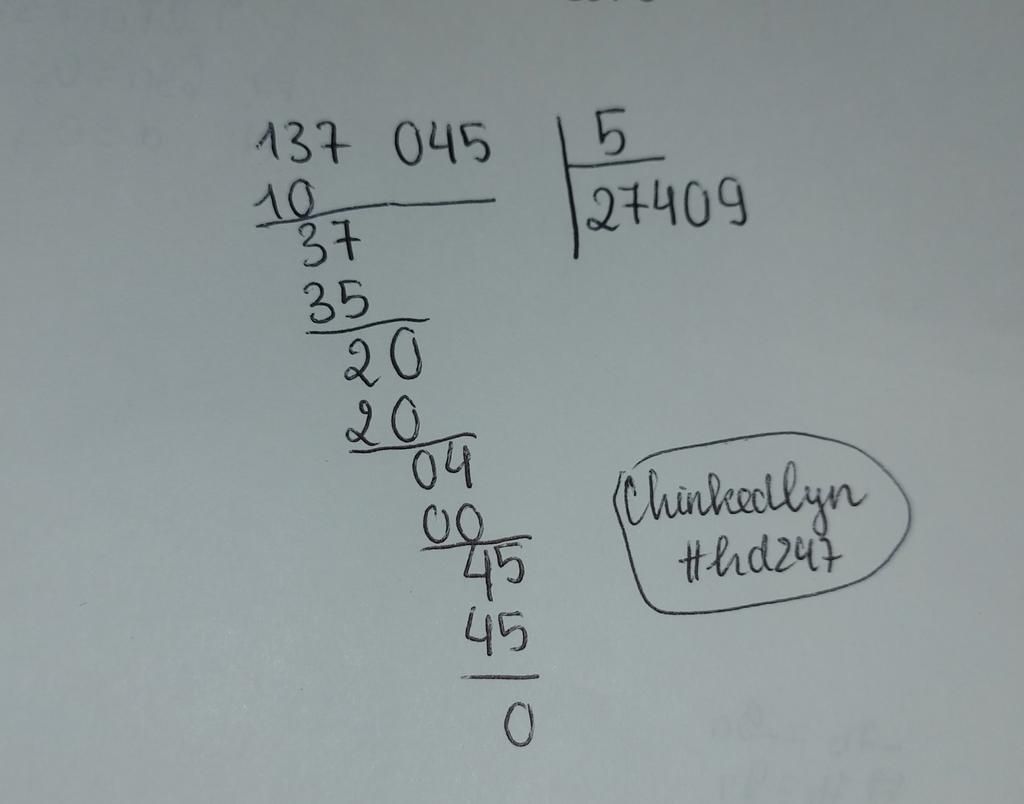 137 045 5
10 27409
37
35
20
20
04
00
45
45
0
Chinkedlyn
#hd247